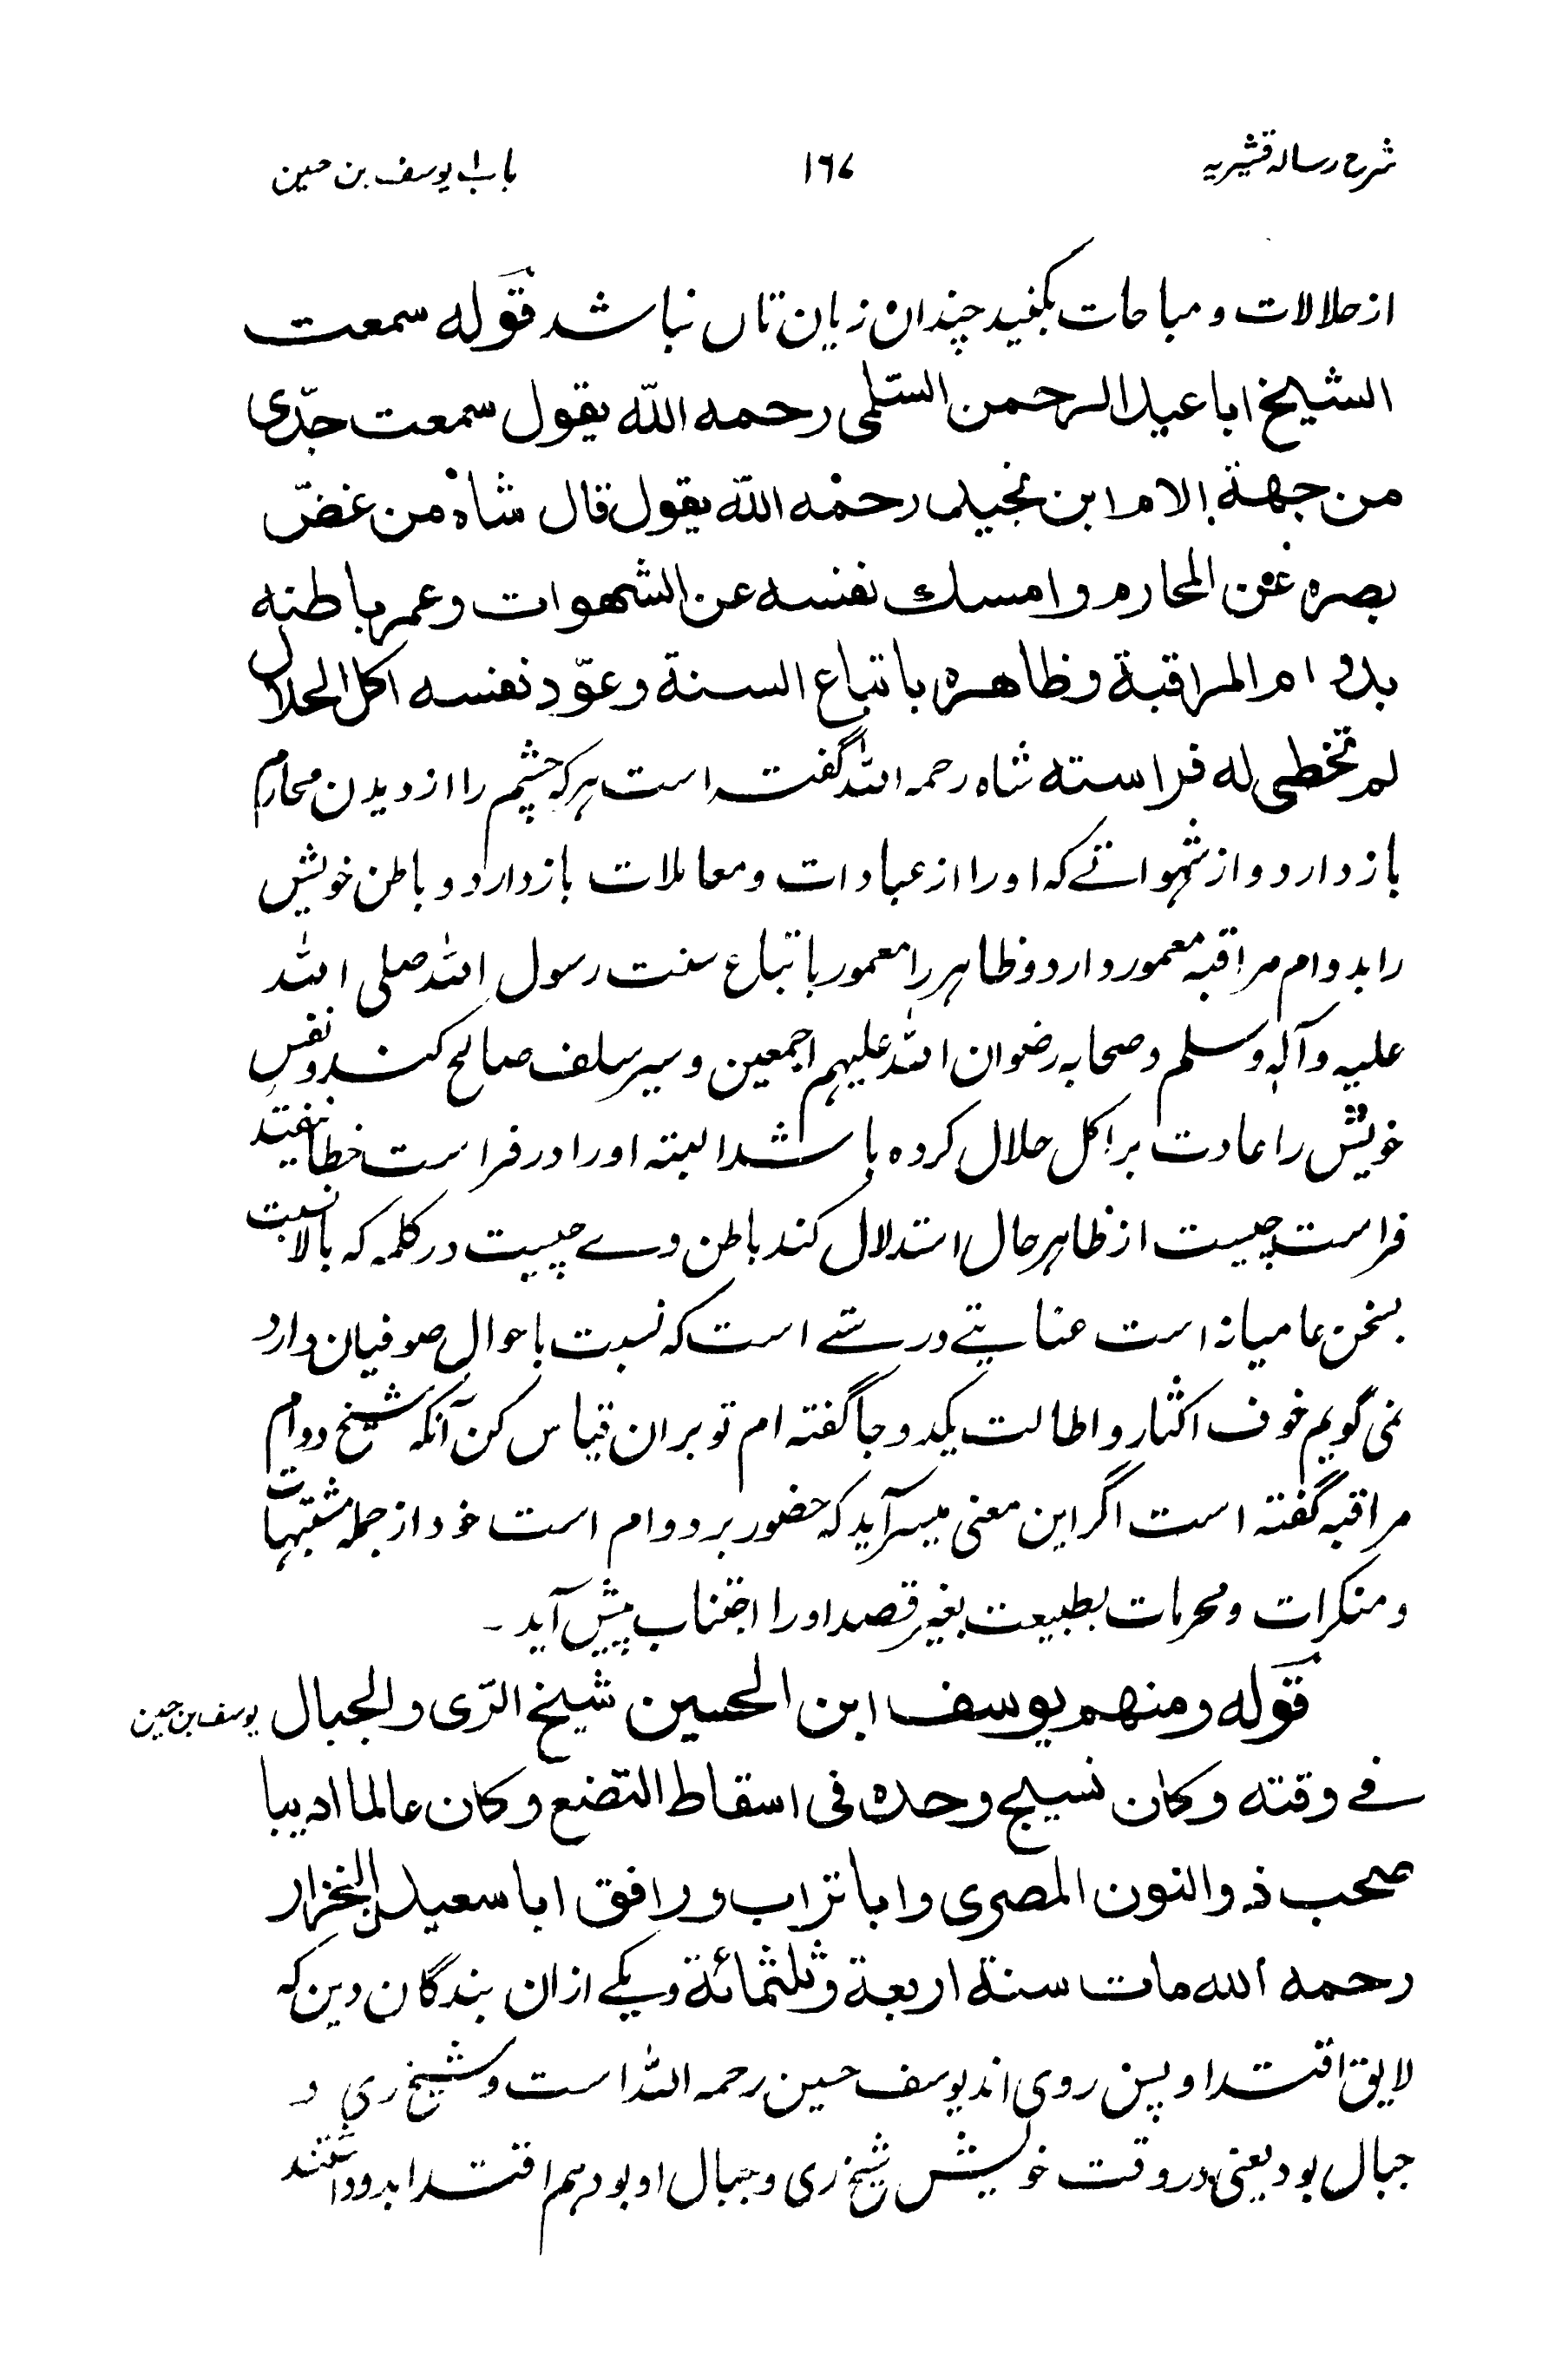 شرح رساله قشیریه
١٦٧
باب یوسف بن حسین
از حلالات و مباحات بکنید چندان زیان تان نباشد قوله سمعت
الشیخ ابا عبد الرحمن السلمی رحمه الله یقول سمعت جدّی
من جهة الام ابن نجید رحمه الله یقول قال شاه من غضّ
بصره عن المحارم و امسك نفسه عن الشهوات و عمر باطنه
بدوام المراقبة و ظاهره باتباع السنة و عوّد نفسه اکل الحلال
لم تخطی له فراسته شاه رحمه الله گفته است هرکه چشم را از دیدن محارم
باز دارد و از شهواتے که او را از عبادات و معاملات باز دارد و باطن خویش
را بدوام مراقبه معمور دارد و ظاهر را معمور باتباع سنت رسول الله صلی الله
علیه و آله و سلم و صحابه رضوان الله علیهم اجمعین و سیر سلف صالح کند و نفس
خویش را عادت بر اکل حلال کرده باشد البته او را در فراست خطا نیفتد
فراست چیست از ظاهر حال استدلال کند باطن وے چیست در کلمه که بالا نسبت
بسخن عامیانه است عنایتے درستے است که نسبت باحوال صوفیان دارد
نمی گویم خوف اکثار و اطالت یکدو جا گفته ام تو بران قیاس کن آنکه شیخ دوام
مراقبه گفته است اگر این معنی میسر آید که حضور بر دوام است خود از جمله مشتبهات
و منکرات و محرمات بطبیعت بغیر قصد او را اجتناب پیش آید۔
قوله و منهم یوسف ابن الحسین شیخ الرّی و الجبال
یوسف بن حسین
فے وقته و کان نسیج وحده فی اسقاط التصنع و کان عالما ادیبا
صحب ذو النون المصری و ابا تراب و رافق ابا سعید الخزار
رحمه الله مات سنة اربعة و ثلثمائة و یکے ازان بندگان دین که
لایق اقتدا و پس روی اند یوسف حسین رحمه الله است و شیخ ری و
جبال بود یعنی در وقت خویش شیخ ری و جبال او بود همه اقتدا بدو داشتند